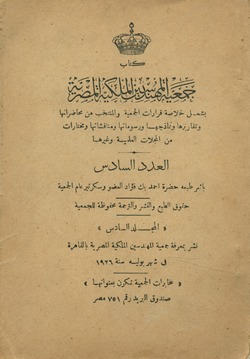 كتاب
جمعية المهندسين الملكية المصرية
يشمل خلاصة قرارات الجمعية والمنتخب من محاضراتها
وتقاريرها ونماذجها ورسوماتها ومناقشاتها ومختارات
من المجلات العلمية وغيرها
العدد السادس
باشر طبعه حضرة احمد بك فؤاد العضو وسكرتير عام الجمعية
حقوق الطبع والنشر والترجمة محفوظة للجمعية
« المجلد السادس »
نشر بمعرفة جمعية المهندسين الملكية المصرية بالقاهرة
في شهر يوليه سنة ١٩٢٦
« مخابرات الجمعية تكون بعنوانها »
صندوق البريد رقم ٧٥١ مصر